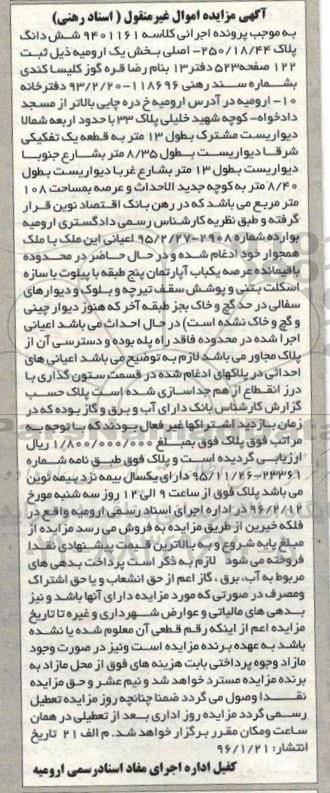 آگهی مزایده اموال غیرمنقول ( اسناد رهنی)
به موجب پرونده اجرائی کلاسه ۹۴۰۱۱۶۱ شش دانگ
پلاک ۲۵۰/۱۸/۴۴- اصلی بخش یک ارومیه ذیل ثبت
۱۲۲ صفحه ۵۲۳ دفتر ۱۳ بنام رضا قره گوز کلیسا کندی
بشماره سند رهنی ۱۱۸۶۹۶-۹۳/۲/۲۰ دفترخانه
۱۰- ارومیه در آدرس ارومیه خ دره چایی بالاتر از مسجد
دادخواه- کوچه شهید خلیلی پلاک ۳۳ با حدود اربعه شمالا
دیواریست مشترک بطول ۱۳ متر به قطعه یک تفکیکی
شرقا دیواریست بطول ۸/۳۵ متر بشارع جنوبا
دیواریست بطول ۱۳ متر بشارع غربا دیواریست بطول
۸/۴۰ متر به کوچه جدید الاحداث و عرصه بمساحت ۱۰۸
متر مربع می باشد که در رهن بانک اقتصاد نوین قرار
گرفته و طبق نظریه کارشناس رسمی دادگستری ارومیه
بوارده شماره ۲۹۰۸-۹۵/۲/۲۷ اعیانی این ملک با ملک
همجوار خود ادغام شده و در حال حاضر در محدوده
باقیمانده عرصه یکباب آپارتمان پنج طبقه با پیلوت با سازه
اسکلت بتنی و پوشش سقف تیرچه و بلوک و دیوارهای
سفالی در حد گچ و خاک بجز طبقه آخر که هنوز دیوار چینی
و گچ و خاک نشده است) در حال احداث می باشد اعیانی
اجرا شده در محدوده فاقد راه پله بوده و دسترسی آن از
پلاک مجاور می باشد لازم به توضیح می باشد اعیانی های
احداثی در پلاکهای ادغام شده در قسمت ستون گذاری با
درز انقطاع از هم جداسازی شده است پلاک حسب
گزارش کارشناس بانک دارای آب و برق و گاز بوده که در
زمان بازدید اشتراکها غیر فعال بودند که با توجه به
مراتب فوق پلاک فوق بمبلغ ۱/۸۰۰/۰۰۰/۰۰۰ ریال
ارزیابی گردیده است و پلاک فوق طبق نامه شماره
۲۳۳۶۱-۹۵/۱۱/۲۶ دارای یکسال بیمه نزد بیمه نوین
می باشد پلاک فوق از ساعت ۹ الی ۱۲ روز سه شنبه مورخ
۹۶/۲/۱۲ در اداره اجرای اسناد رسمی ارومیه واقع در
فلکه خیرین از طریق مزایده به فروش می رسد مزایده از
مبلغ پایه شروع و به بالاترین قیمت پیشنهادی نقدا
فروخته می شود لازم به ذکر است پرداخت بدهی های
مربوط به آب، برق ، گاز اعم از حق انشعاب و یا حق اشتراک
ومصرف در صورتی که مورد مزایده دارای آنها باشد و نیز
بدهی های مالیاتی و عوارض شهرداری و غیره تا تاریخ
مزایده اعم از اینکه رقم قطعی آن معلوم شده یا نشده
باشد به عهده برنده مزایده است ونیز در صورت وجود
مازاد وجوه پرداختی بابت هزینه های فوق از محل مازاد به
برنده مزایده مسترد خواهد شد و نیم عشر و حق مزایده
نقدا وصول می گردد ضمنا چنانچه روز مزایده تعطیل
رسمی گردد مزایده روز اداری بعد از تعطیلی در همان
ساعت ومکان مقرر برگزار خواهد شد. م الف ۲۱ تاریخ
انتشار: ۹۶/۱/۲۱
کفیل اداره اجرای مفاد اسنادرسمی ارومیه